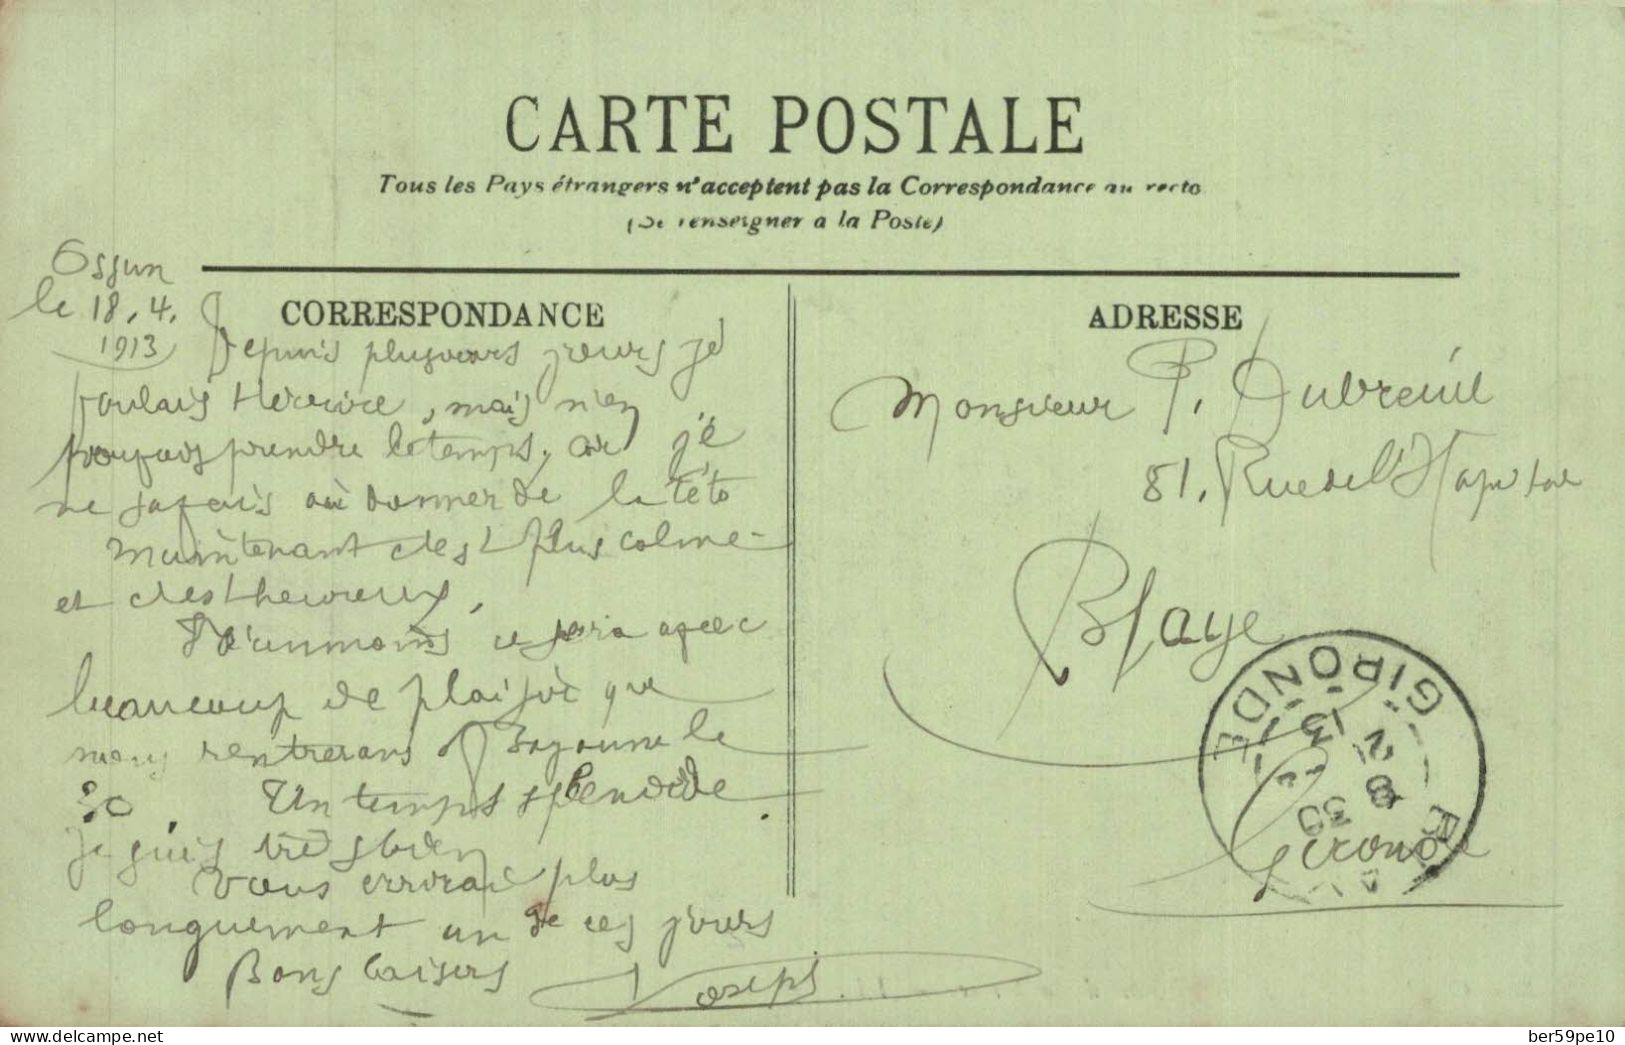 CARTE POSTALE
Tous les Pays étrangers n'acceptent pas la Correspondance au recto
(Se renseigner à la Poste)
Ossun
le 18.4.
1913
CORRESPONDANCE
Depuis plusieurs jours je
voulais t'écrire, mais n'en
pouvais prendre le temps, car je
ne savais où donner de la tête
maintenant c'est plus calme
et c'est heureux.
Néanmoins ce sera avec
beaucoup de plaisir que
nous rentrerons à Bayonne le
30. Un temps splendide.
Je suis très bien
Vous écrirai plus
longuement un de ces jours
Bons baisers
Joseph
ADRESSE
Monsieur P. Dubreuil
81, Rue de l'Hopital
Blaye
Gironde
GIRONDE
13
2
8 30
ber-france.delcampe.net
ber59pe10